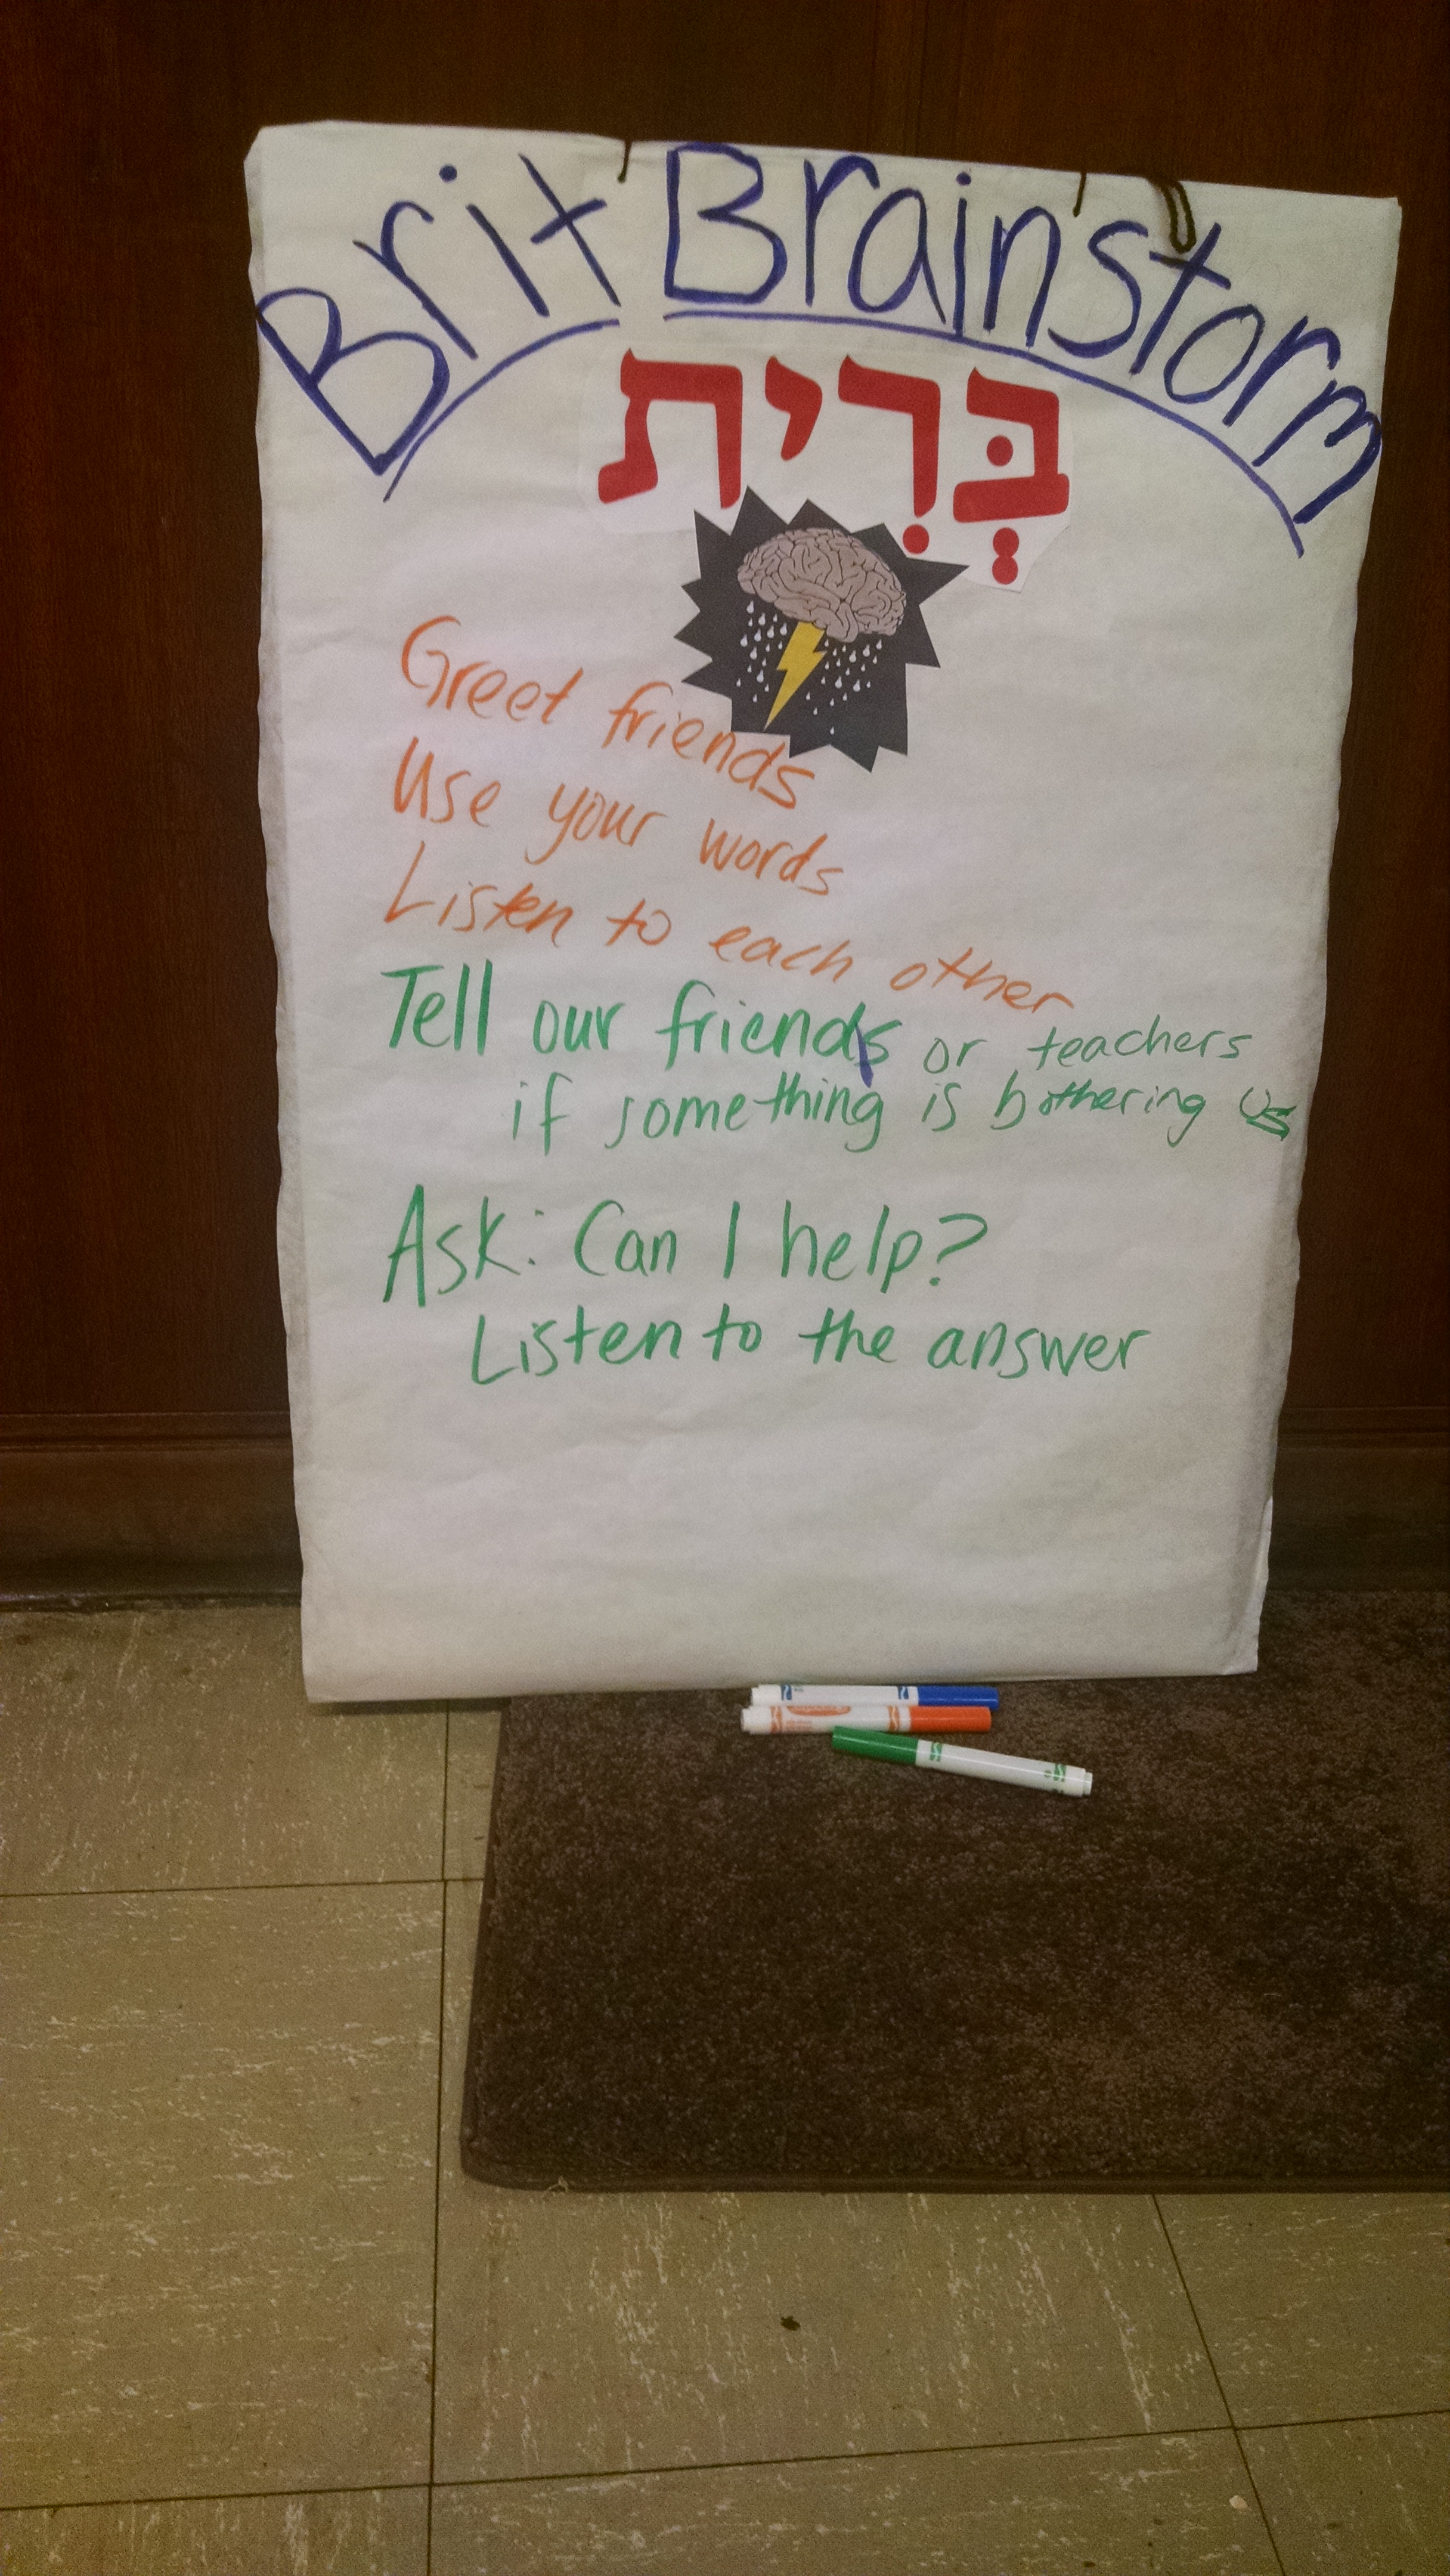 Brit Brainstorm
בְּרִית
Greet friends
Use your words
Listen to each other
Tell our friends or teachers
if something is bothering us
Ask: Can I help?
Listen to the answer